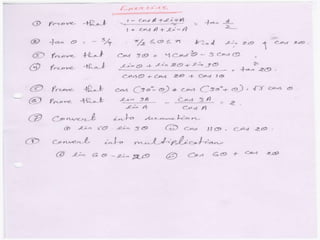 Exercise
① Prove that (1 - cosA + sinA)/(1 + cosA + sinA) = tan A/2
② tan θ = -3/4 π/2 ≤ θ ≤ π find sin 2θ & cos 2θ.
③ Prove that cos 3θ = 4cos³θ - 3cosθ
④ Prove that (sinθ + sin2θ + sin3θ)/(cosθ + cos2θ + cos3θ) = tan 2θ.
⑤ Prove that cos (30°-θ) + cos (30°+θ) = √3 cosθ
⑥ Prove that sin 3A/sin A - cos 3A/cos A = 2.
Convert into summation
sin 5θ sin 3θ cos 11θ. cos 2θ
Convert into multiplication
sin 6θ - sin 2θ cos 6θ + cos 2θ